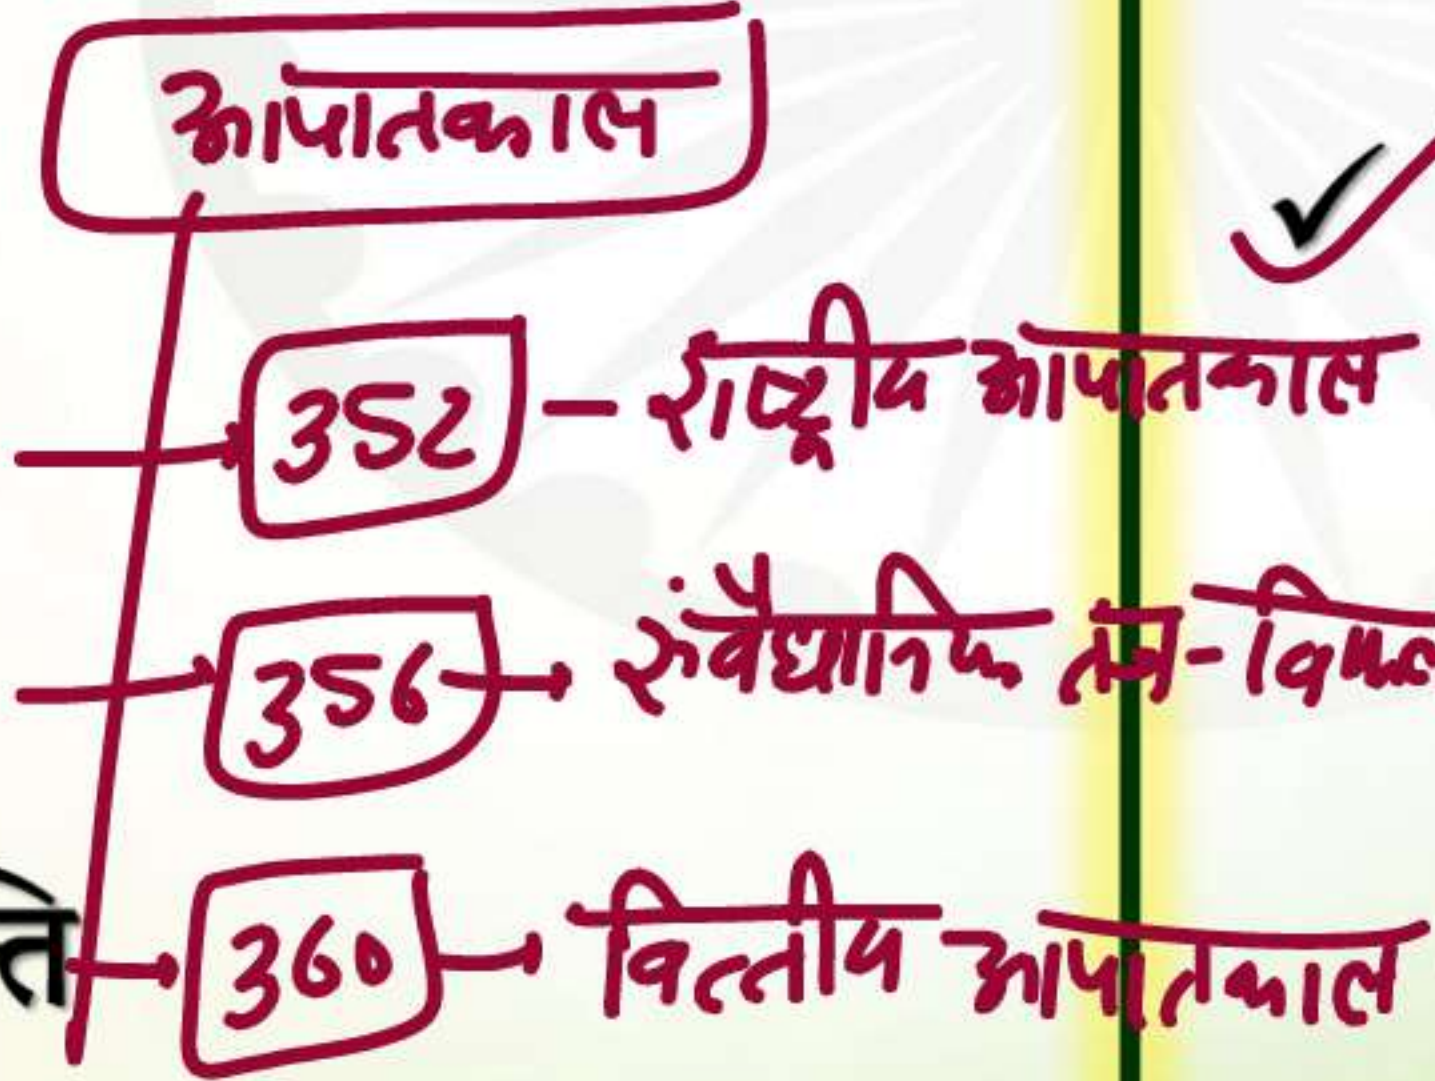 आपातकाल
352 - राष्ट्रीय आपातकाल
356 → संवैधानिक तंत्र-विफल
ति
360 → वित्तीय आपातकाल